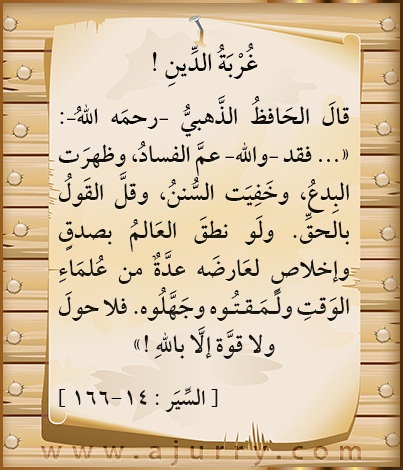 غُرْبَةُ الدِّينِ !
قالَ الحَافظُ الذَّهبيُّ -رحمَه اللهُ-:
«... فقد -والله- عمَّ الفسادُ، وظهرَت
البِدعُ، وخَفِيَت السُّننُ، وقلَّ القَولُ
بالحقِّ. ولَو نطقَ العَالمُ بصدقٍ
وإخلاصٍ لعَارضَه عدَّةٌ من عُلمَاءِ
الوَقتِ ولَمَقتُوه وجَهَّلُوه. فلا حولَ
ولا قوَّة إلَّا باللهِ !»
[ السِّيَر : ١٤-١٦٦ ]
www.ajurry.com